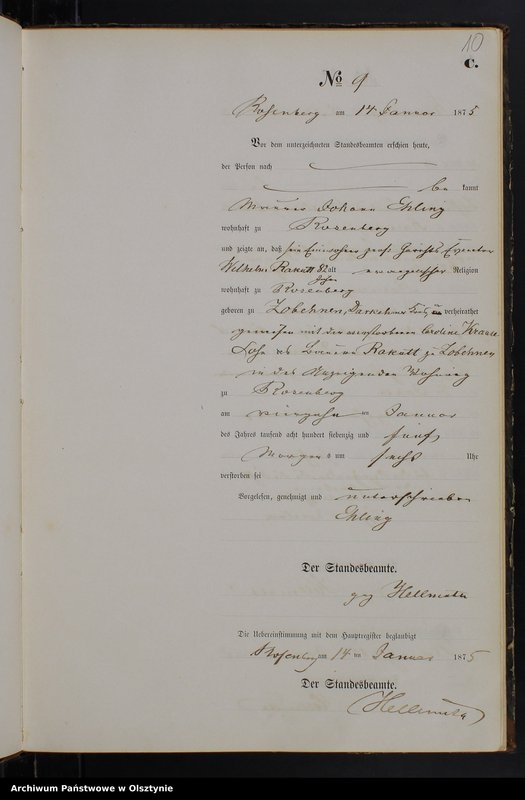 10
C.
No 9
Rosenberg am 14 Januar 1875
Vor dem unterzeichneten Standesbeamten erschien heute,
der Person nach
be kannt
Maurer Johann Ehling
wohnhaft zu Rosenberg
und zeigte an, daß sein Einwohner Gerichts Executor
Wilhelm Rakutt 82 Jahre alt evangelischer Religion
wohnhaft zu Rosenberg
geboren zu Zobehnen, Darkehmer Kreis, verheirathet
gewesen mit der verstorbenen Caroline Krause
Sohn des Bauern Rakutt zu Zobehnen
in des Anzeigenden Wohnung
zu Rosenberg
am vierzehn ten Januar
des Jahres tausend acht hundert siebenzig und fünf
Morgens um sechs Uhr
verstorben sei
Vorgelesen, genehmigt und unterschrieben
Ehling
Der Standesbeamte.
gez Hellmuth
Die Uebereinstimmung mit dem Hauptregister beglaubigt
Rosenberg am 14 ten Januar 1875
Der Standesbeamte.
Hellmuth
Archiwum Państwowe w Olsztynie